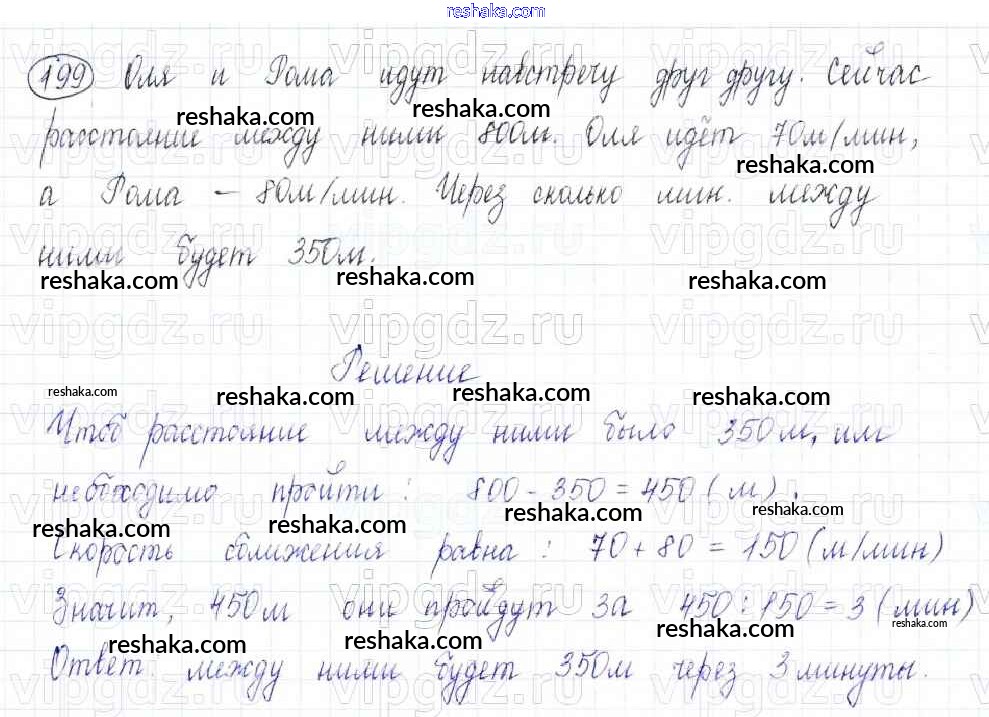 reshaka.com
199 Оля и Рома идут навстречу друг другу. Сейчас
reshaka.com reshaka.com
расстояние между ними 800м. Оля идёт 70м/мин,
reshaka.com
а Рома – 80м/мин. Через сколько мин. между
ними будет 350м.
reshaka.com reshaka.com reshaka.com
vipgdz.ru vipgdz.ru vipgdz.ru
Решение
reshaka.com reshaka.com reshaka.com reshaka.com
Чтоб расстояние между ними было 350м, им
необходимо пройти: 800 - 350 = 450 (м).
reshaka.com reshaka.com reshaka.com reshaka.com
Скорость сближения равна: 70 + 80 = 150 (м/мин)
Значит, 450м они пройдут за 450 : 150 = 3 (мин)
reshaka.com reshaka.com reshaka.com reshaka.com
Ответ. между ними будет 350м через 3 минуты.